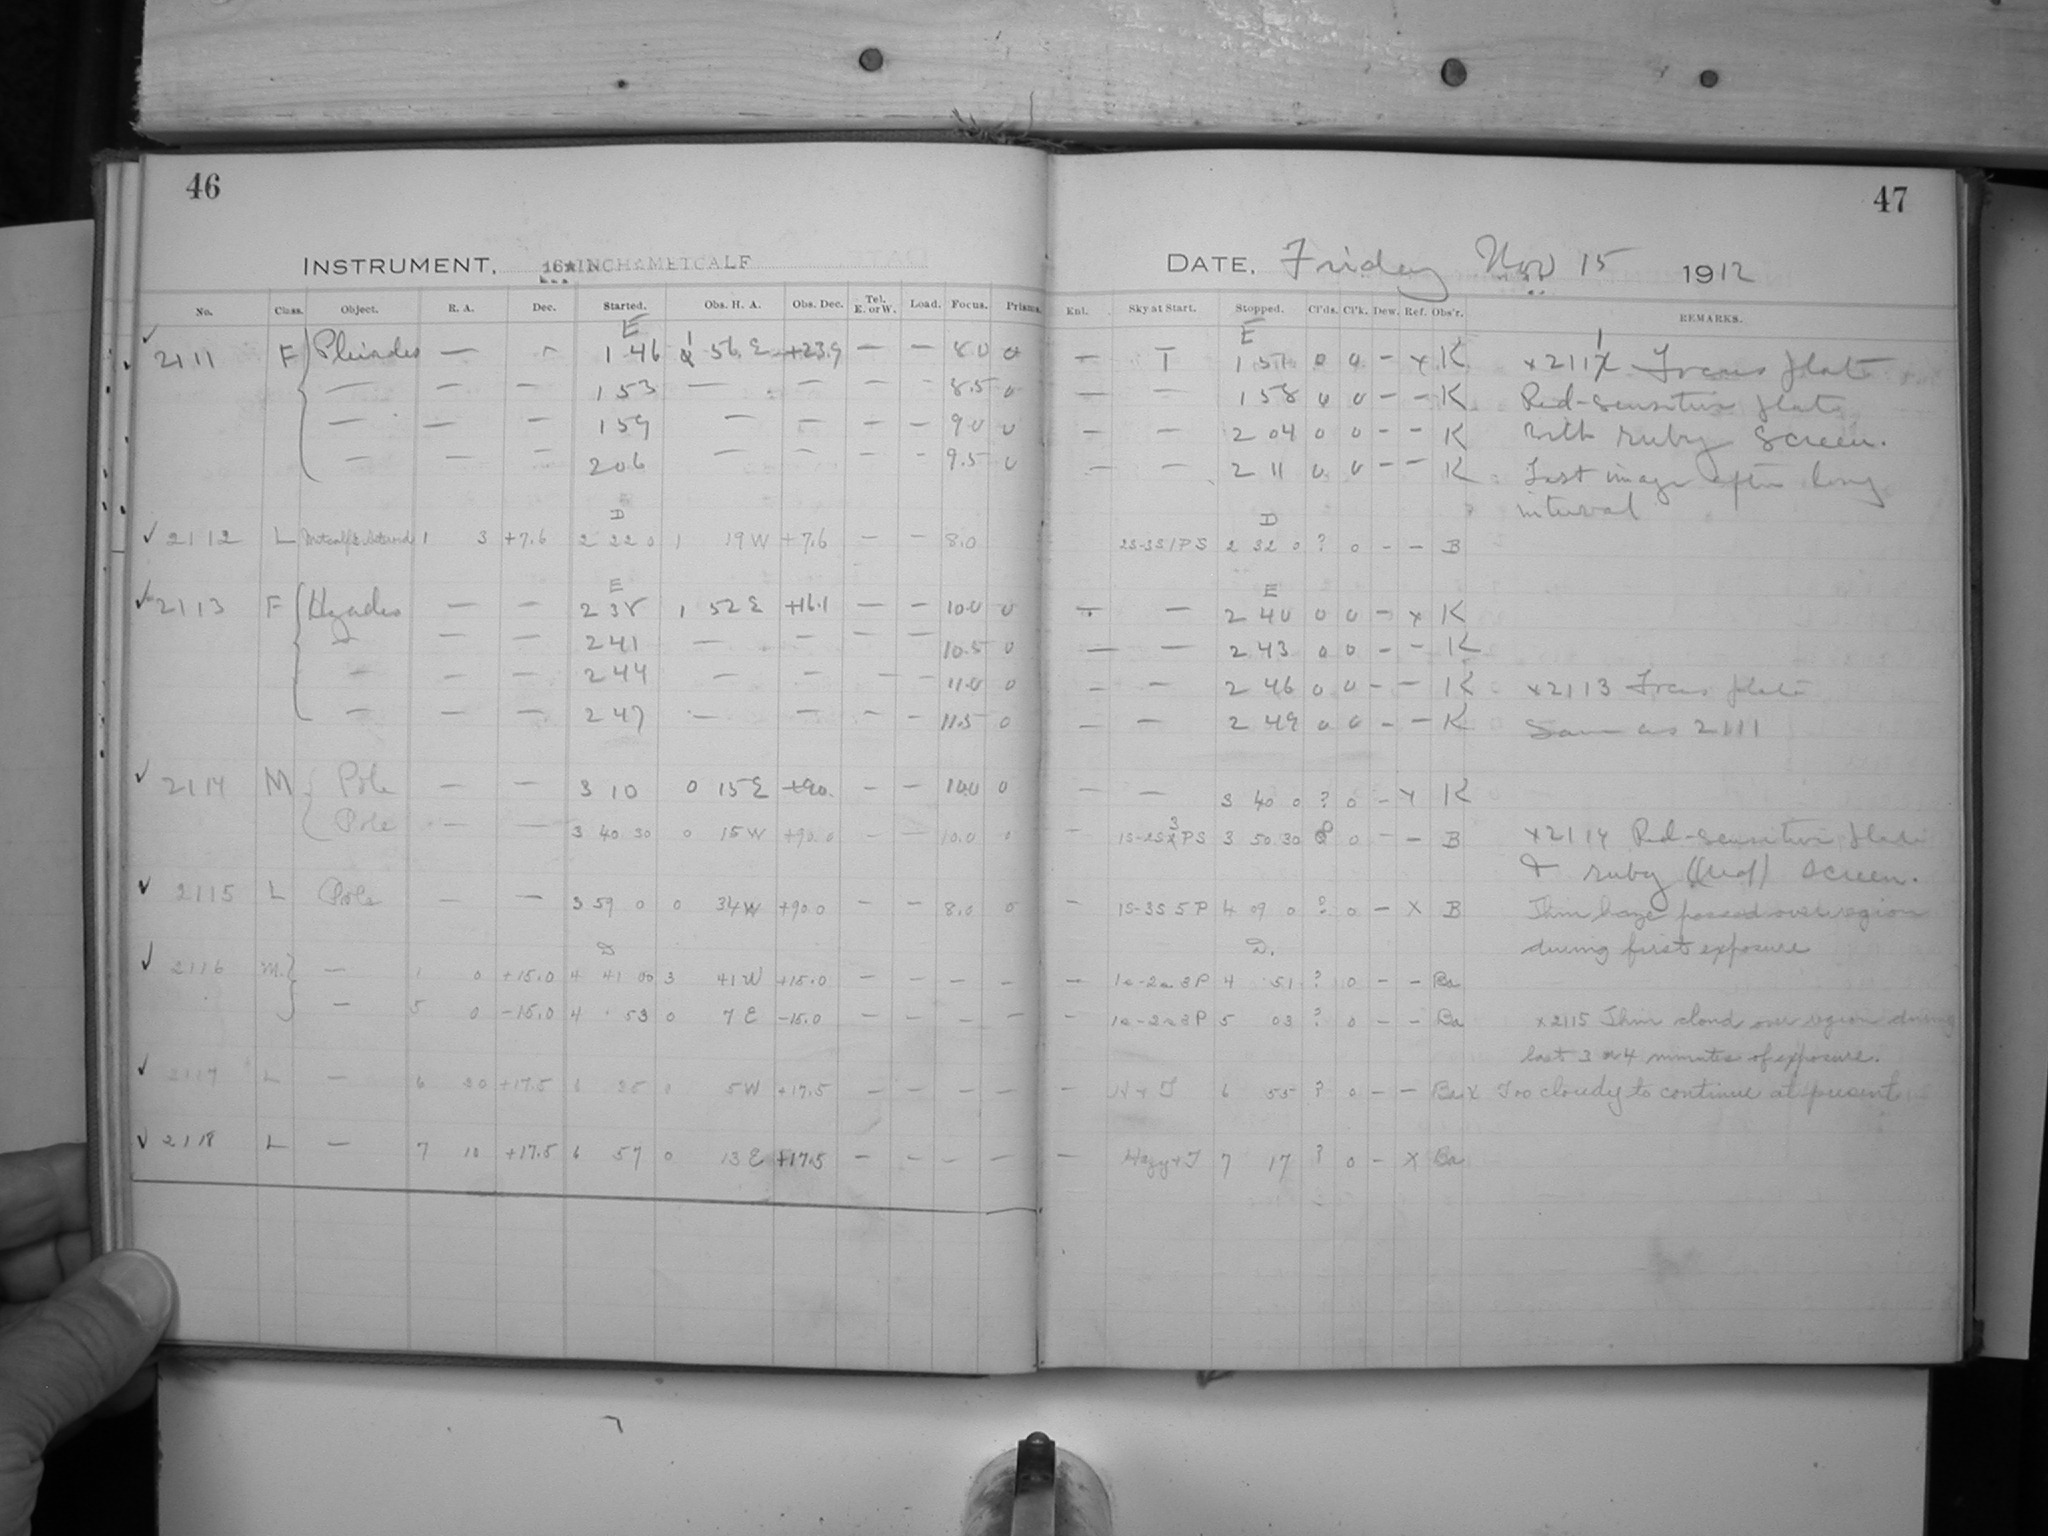 46
47
INSTRUMENT, 16 INCH METCALF
DATE, Friday Nov 15 1912
No. Class. Object. R. A. Dec. Started. Obs. H. A. Obs. Dec. Tel. E. or W. Load. Focus. Prisms. Enl. Sky at Start. Stopped. Cl'ds. Cl'k. Dew. Ref. Obs'r. REMARKS.
E E
2111 F Pleiades — 1 46 1 56 E +23.9 — — 8.0 0 — T 1 51 0 0 — x K x2111 Focus plate
— — — 1 53 — — — — 8.5 0 — — 1 58 0 0 — — K Red-sensitive plate
— — — 1 59 — — — — 9.0 0 — — 2 04 0 0 — — K with ruby screen.
— — — 2 06 — — — — 9.5 0 — — 2 11 0 0 — — K Last image after long
interval
D D
✓ 2112 L 1 3 +7.6 2 22 0 1 19 W +7.6 — — 8.0 2S-3S1PS 2 32 0 ? 0 — — B
E E
✓ 2113 F Hyades — — 2 38 1 52 E +16.1 — — 10.0 0 — — 2 40 0 0 — x K
— — — 2 41 — — — — 10.5 0 — — 2 43 0 0 — — K
— — — 2 44 — — — — 11.0 0 — — 2 46 0 0 — — K x2113 Focus plate
— — — 2 47 — — — — 11.5 0 — — 2 49 0 0 — — K Same as 2111
✓ 2114 M Pole — — 3 10 0 15 E +90. — — 10.0 0 — — 3 40 0 ? 0 — x K
Pole — — 3 40 30 0 15 W +90.0 — — 10.0 0 — 1S-2S3PS 3 50 30 0 — — B x2114 Red-sensitive plate
& ruby (red) screen.
✓ 2115 L Pole — — 3 59 0 0 34 W +90.0 — — 8.0 0 — 1S-3S5P 4 09 0 ? 0 — x B Thin haze passed over region
during first exposure
D D.
✓ 2116 M. — 1 0 +15.0 4 41 00 3 41 W +15.0 — — — — — 1a-2a3P 4 51 ? 0 — — Ba
— 5 0 -15.0 4 53 0 7 E -15.0 — — — — — 1a-2a3P 5 03 ? 0 — — Ba x2115 Thin cloud over region during
last 3 or 4 minutes of exposure.
✓ 2117 L — 6 30 +17.5 6 35 0 5 W +17.5 — — — — — H + T 6 55 ? 0 — — Ba x Too cloudy to continue at present
✓ 2118 L — 7 10 +17.5 6 57 0 13 E +17.5 — — — — — Hazy+T 7 17 ? 0 — x Ba